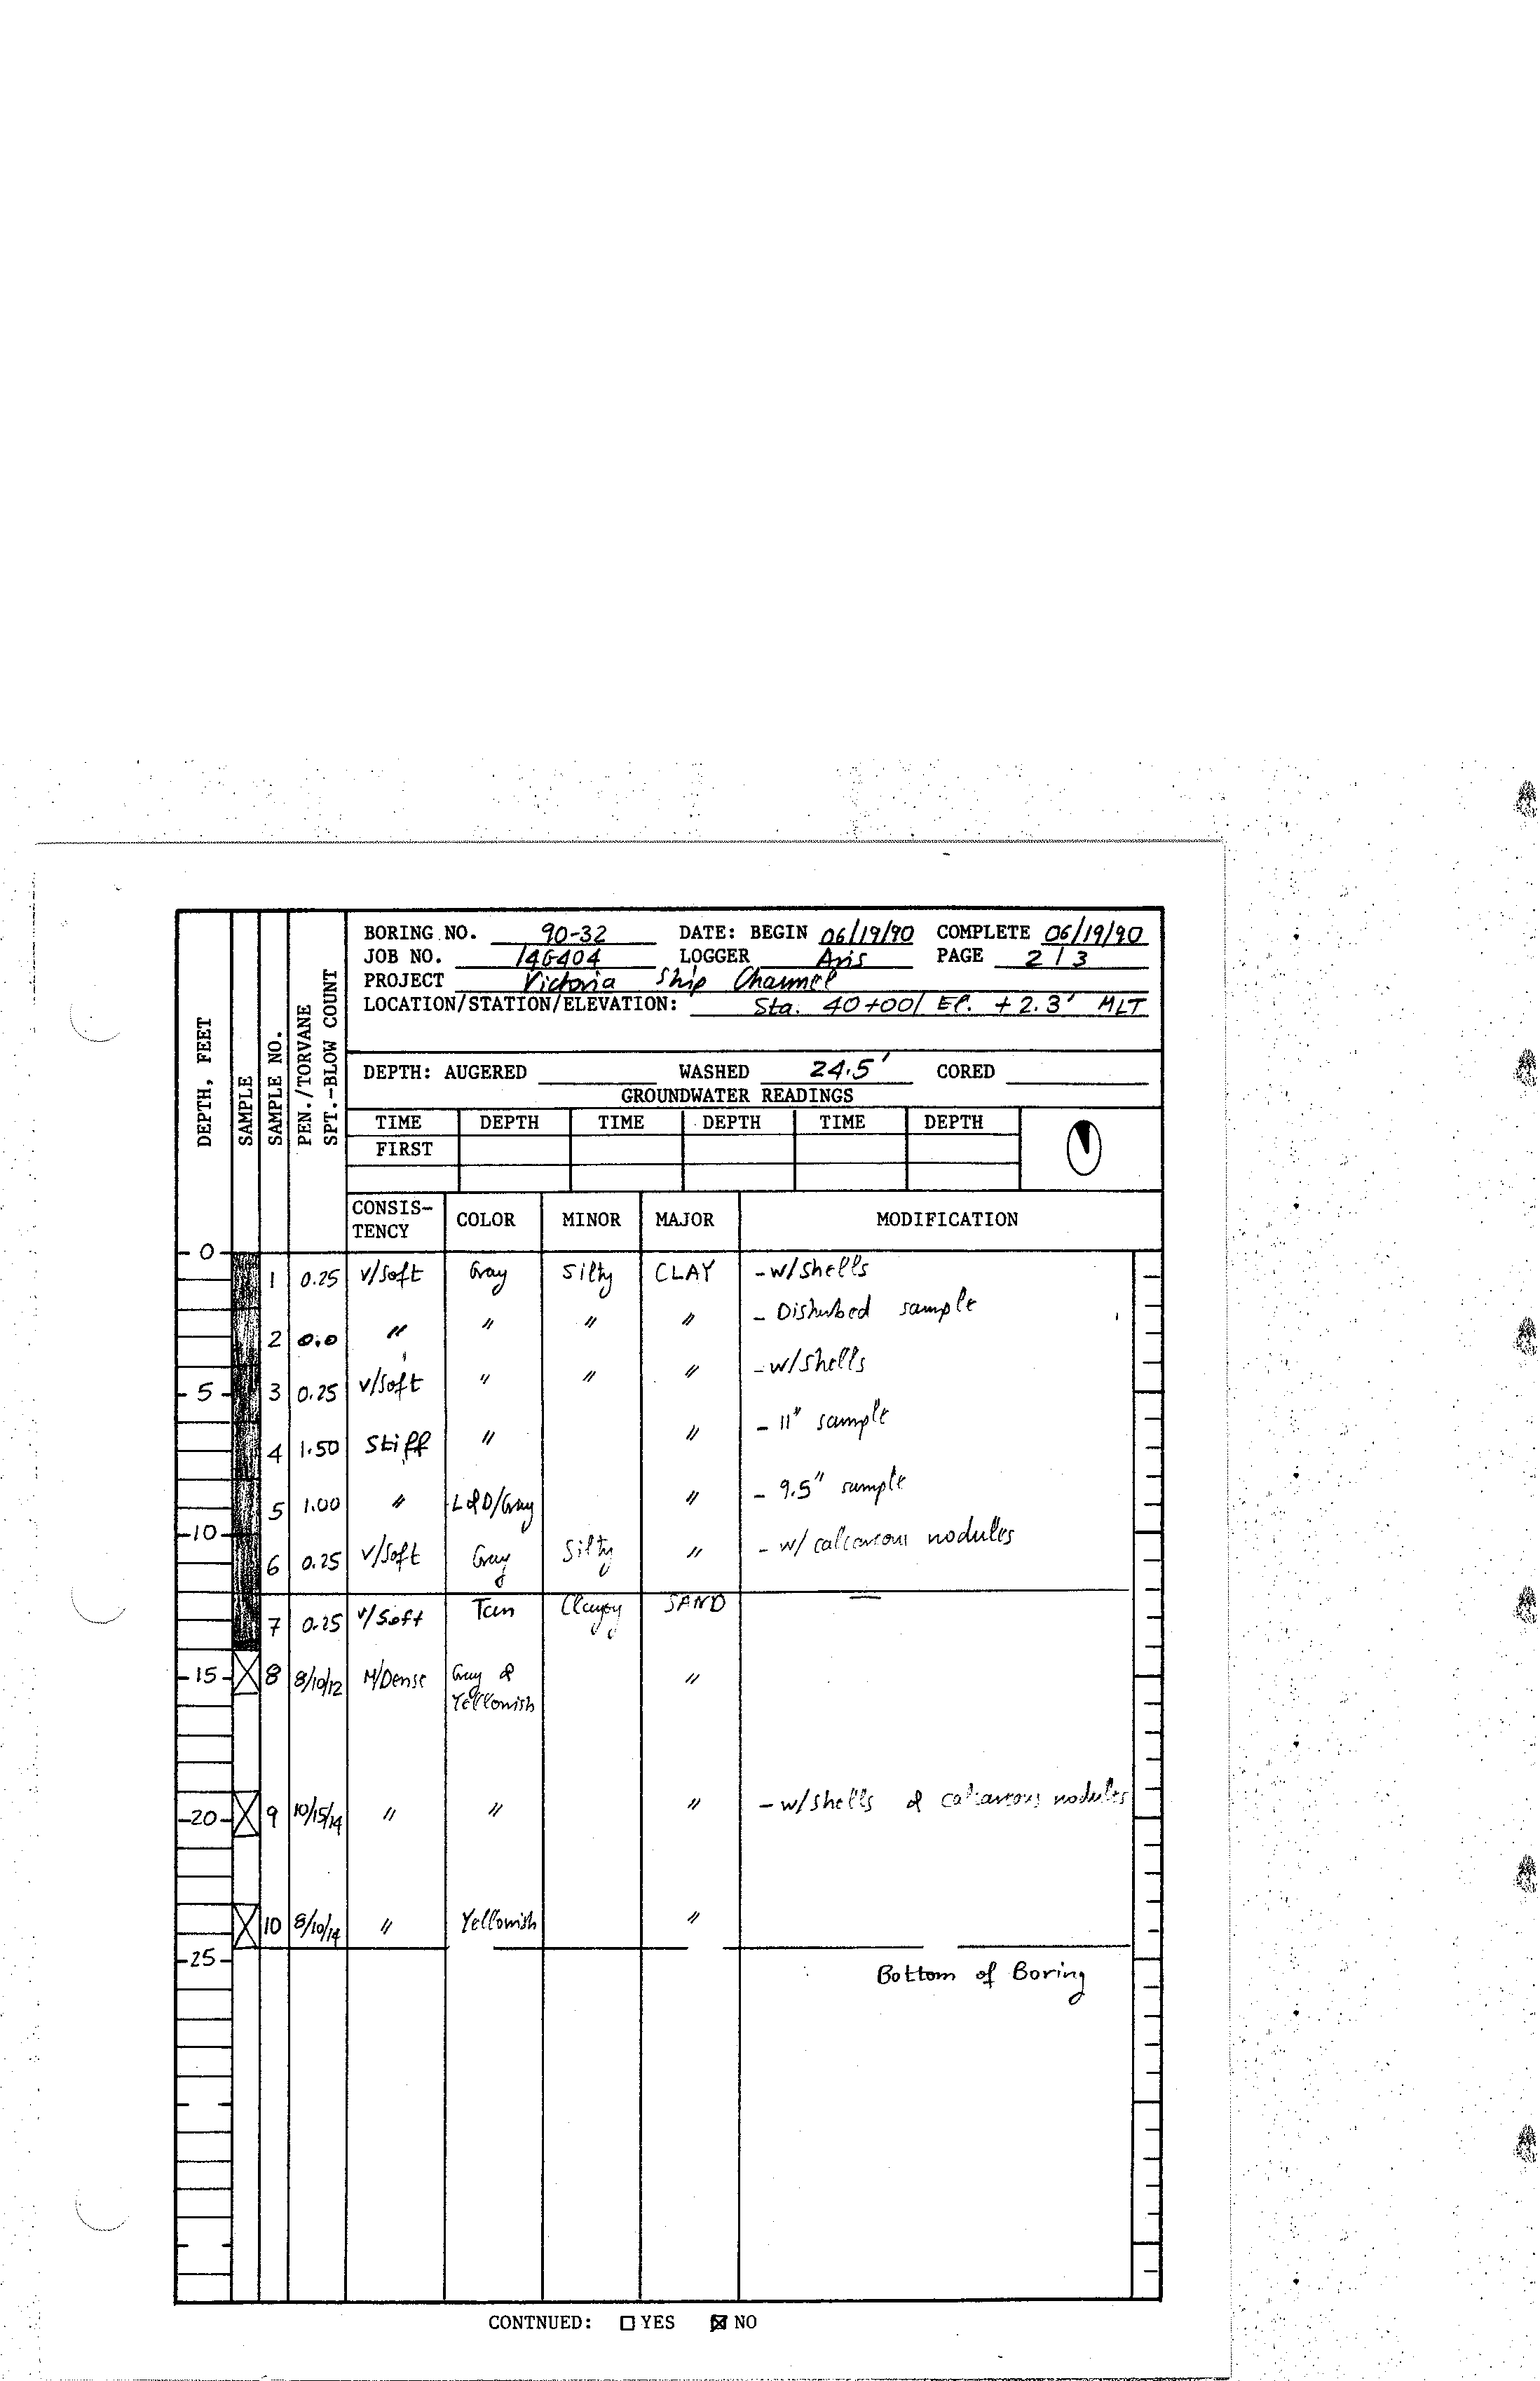 BORING NO. 90-32 DATE: BEGIN 06/19/90 COMPLETE 06/19/90
JOB NO. 146404 LOGGER Aris PAGE 2 / 3
PROJECT Victoria Ship Channel
LOCATION/STATION/ELEVATION: Sta. 40+00/ El. +2.3' MLT
DEPTH: AUGERED WASHED 24.5' CORED
GROUNDWATER READINGS
TIME DEPTH TIME DEPTH TIME DEPTH
FIRST
DEPTH, FEET
SAMPLE
SAMPLE NO.
PEN./TORVANE
SPT.-BLOW COUNT
CONSIS-
TENCY COLOR MINOR MAJOR MODIFICATION
0
1 0.25 V/Soft Gray Silty CLAY - w/shells
2 0.0 " " " " - Disturbed sample
5 3 0.25 V/Soft " " " - w/shells
4 1.50 Stiff " " - 11" sample
5 1.00 " L&D/Gray " - 9.5" sample
10
6 0.25 V/Soft Gray Silty " - w/ calcareous nodules
7 0.25 V/Soft Tan Clayey SAND
15 8 8/10/12 M/Dense Gray & "
Yellowish
20 9 10/15/14 " " " - w/shells & calcareous nodules
10 8/10/14 " Yellowish "
25
Bottom of Boring
CONTNUED: YES NO